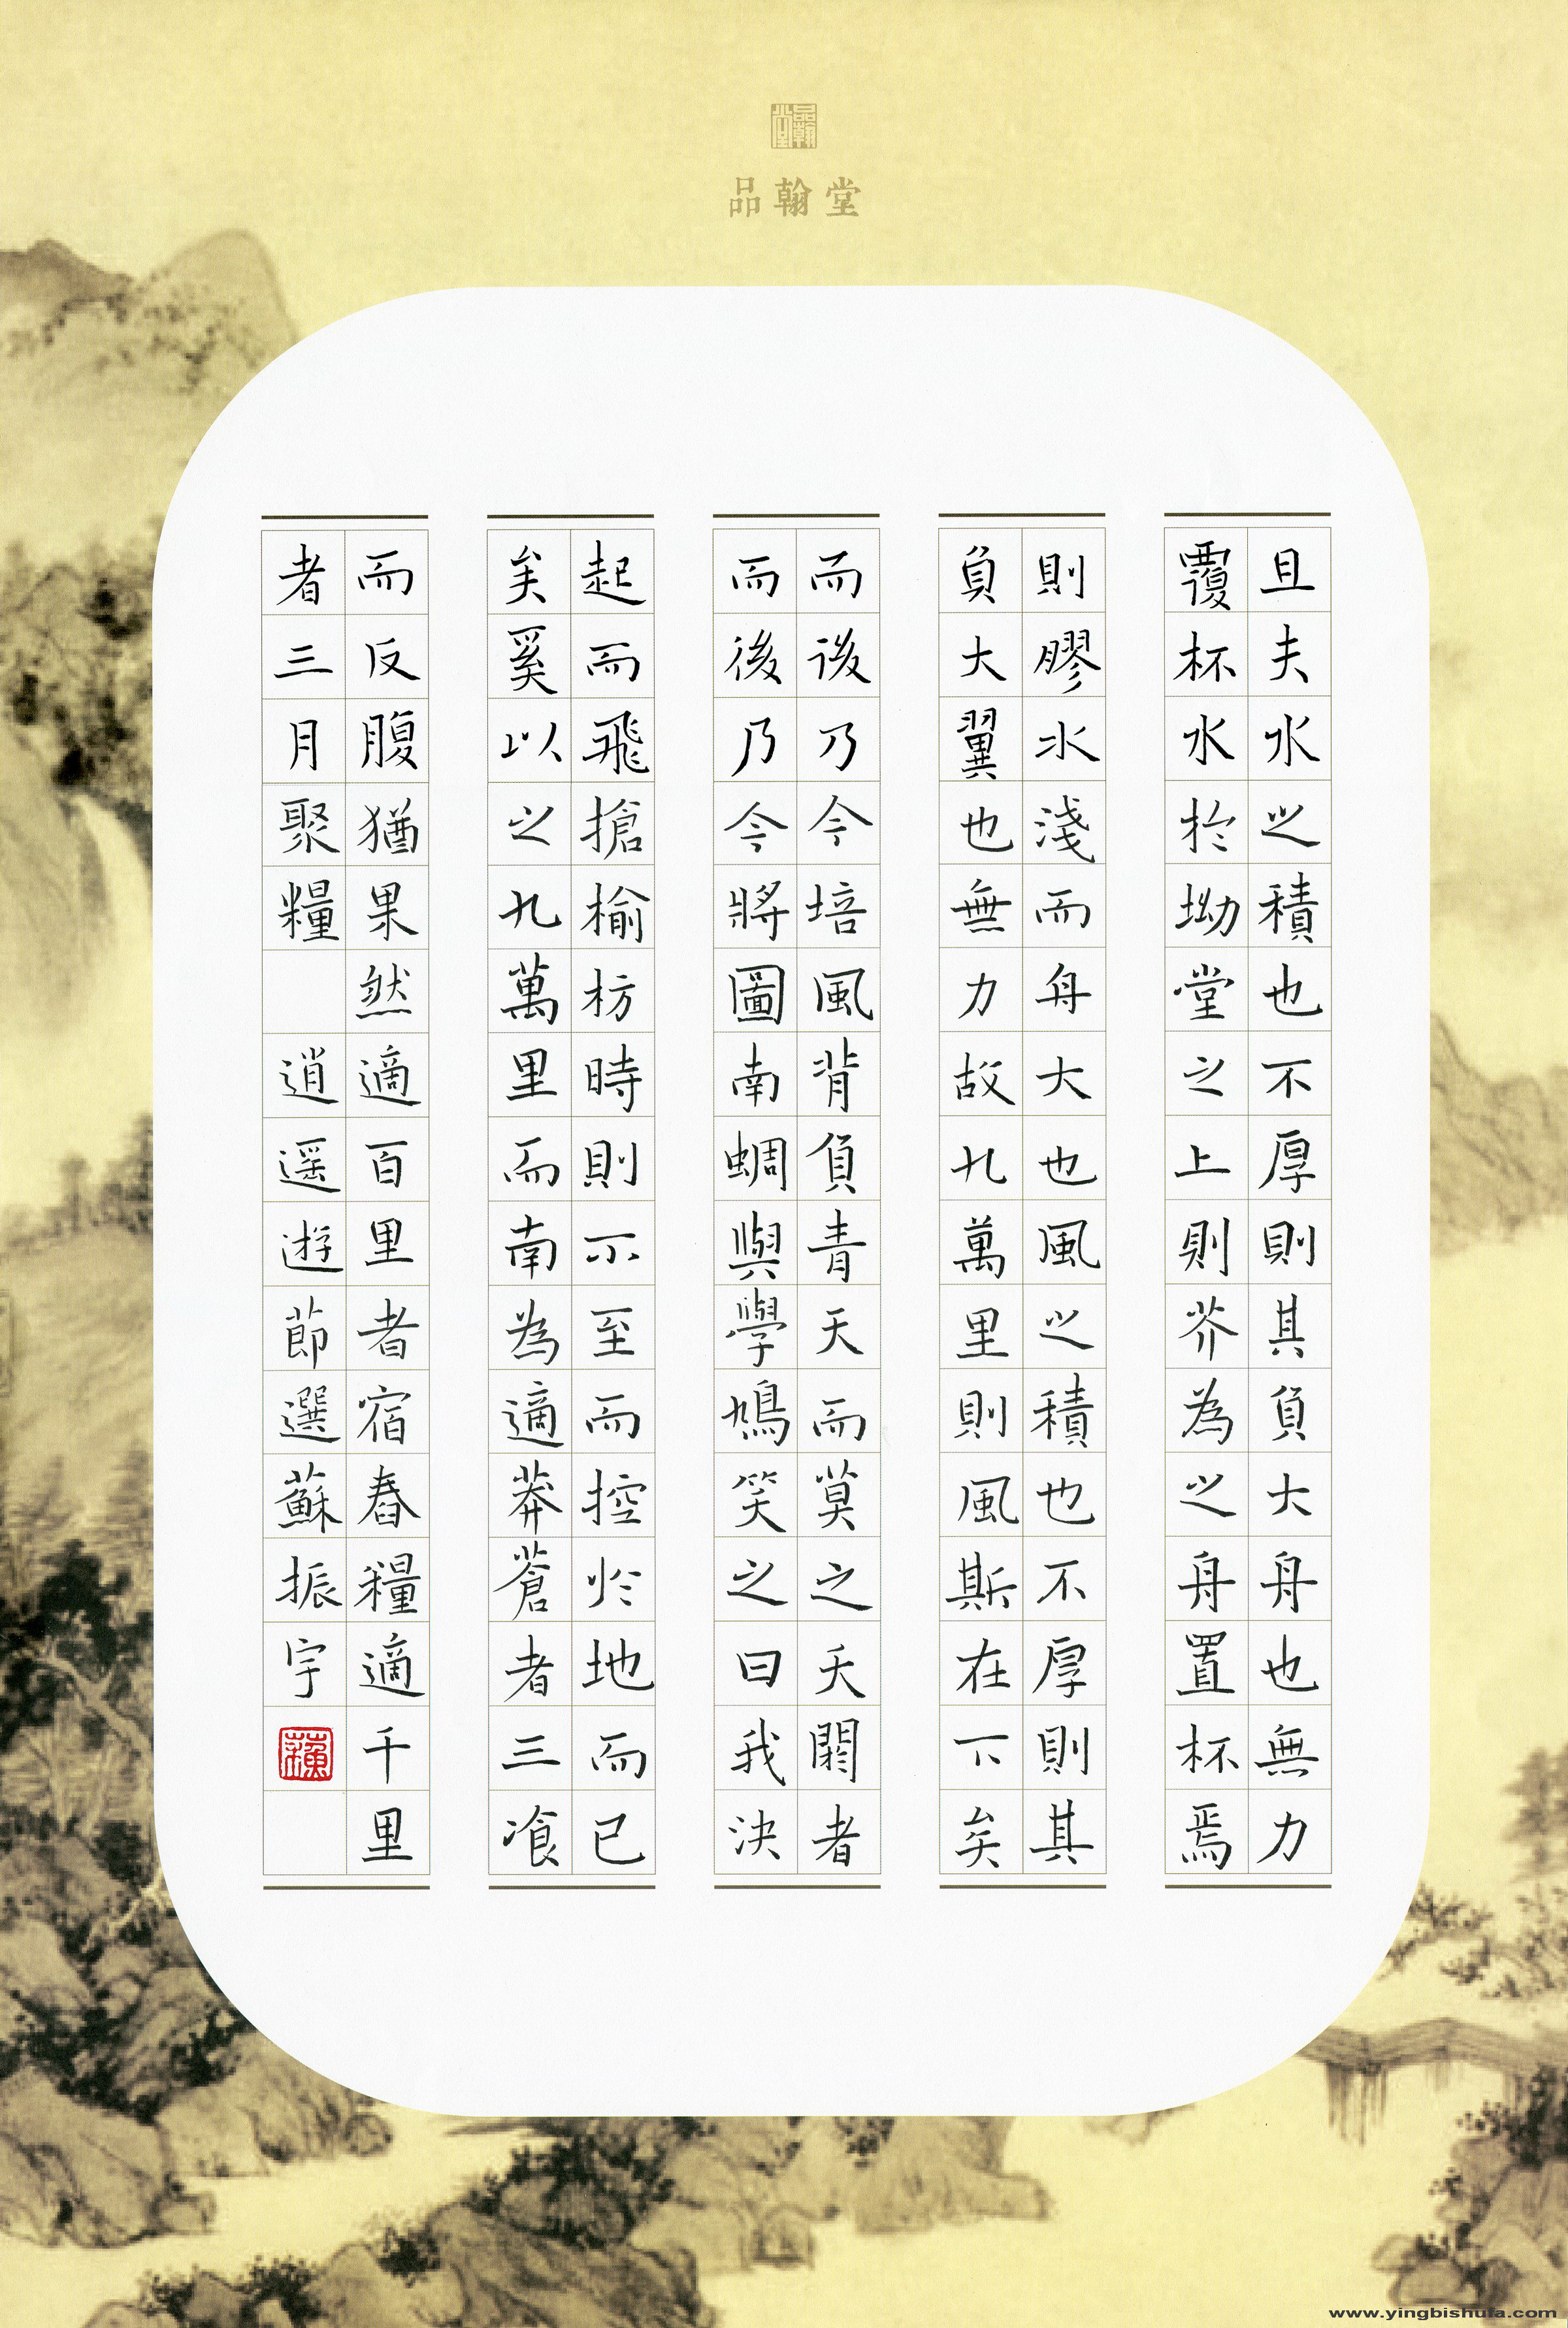 品翰堂
品翰堂
且夫水之積也不厚則其負大舟也無力
覆杯水於坳堂之上則芥為之舟置杯焉
則膠水淺而舟大也風之積也不厚則其
負大翼也無力故九萬里則風斯在下矣
而後乃今培風背負青天而莫之夭閼者
而後乃今將圖南蜩與學鳩笑之曰我決
起而飛搶榆枋時則不至而控於地而已
矣奚以之九萬里而南為適莽蒼者三飡
而反腹猶果然適百里者宿舂糧適千里
者三月聚糧 逍遥遊節選蘇振宇
蘇
www.yingbishufa.com